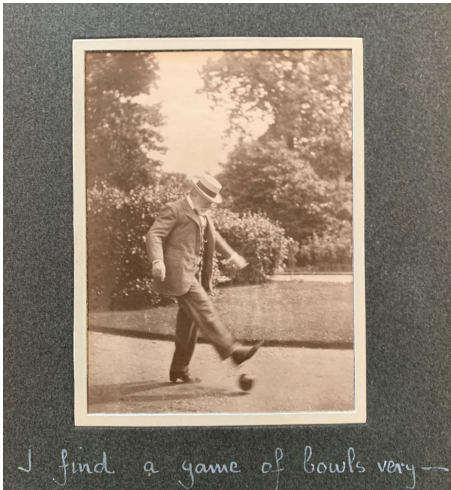 I find a game of bowls very—